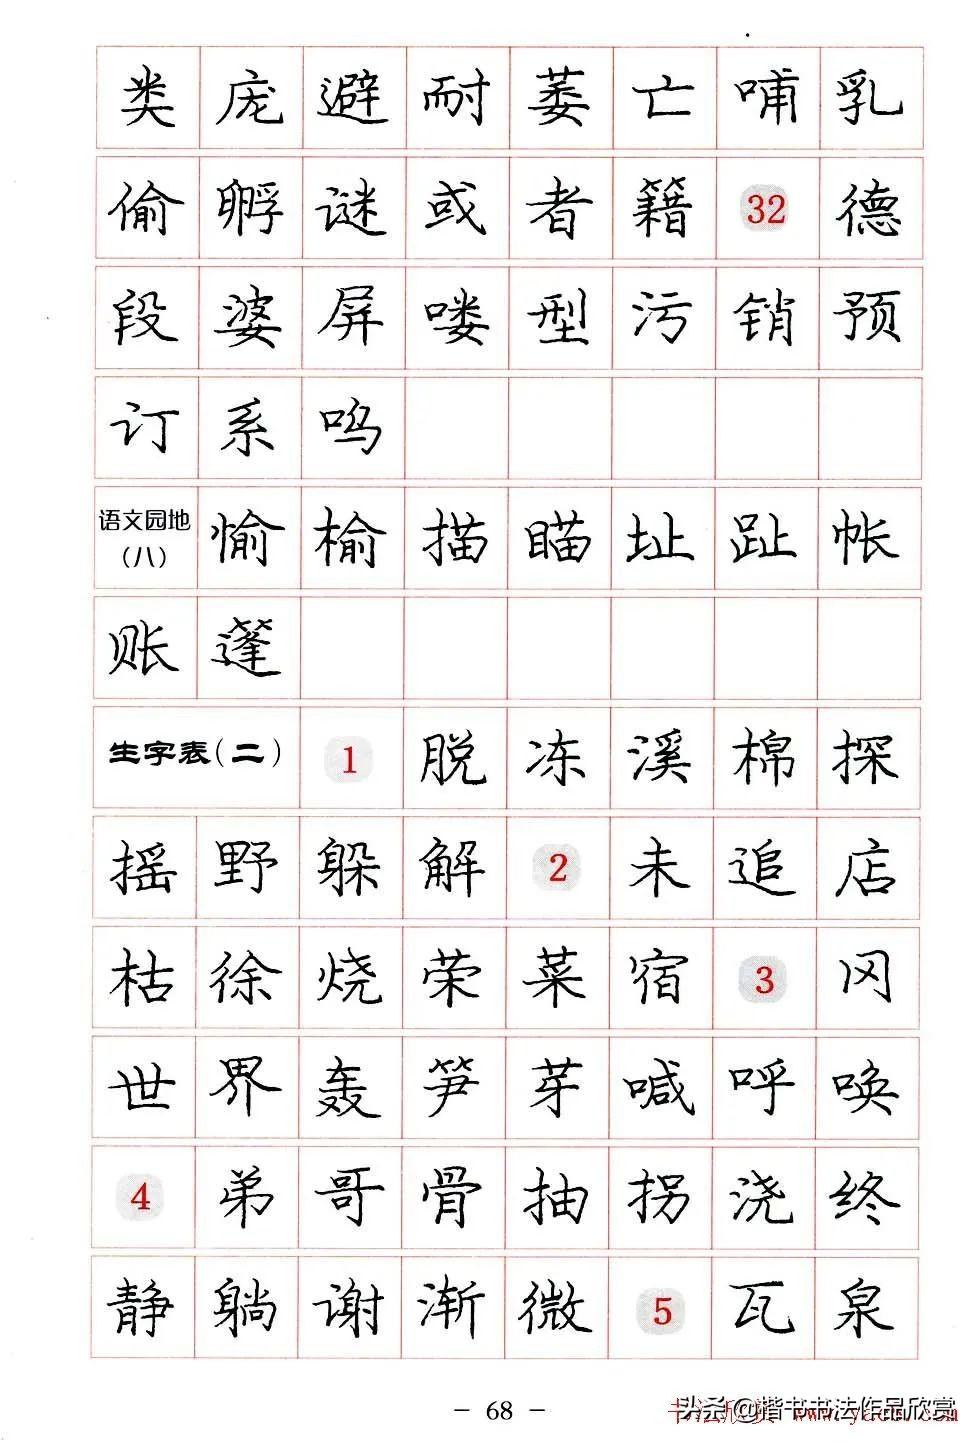 类 庞 避 耐 萎 亡 哺 乳
偷 孵 谜 或 者 籍 32 德
段 婆 屏 喽 型 污 销 预
订 系 呜
语文园地（八） 愉 榆 描 瞄 址 趾 帐
账 蓬
生字表（二） 1 脱 冻 溪 棉 探
摇 野 躲 解 2 未 追 店
枯 徐 烧 荣 菜 宿 3 冈
世 界 轰 笋 芽 喊 呼 唤
4 弟 哥 骨 抽 拐 浇 终
静 躺 谢 渐 微 5 瓦 泉
– 68 –
头条@楷书书法作品欣赏